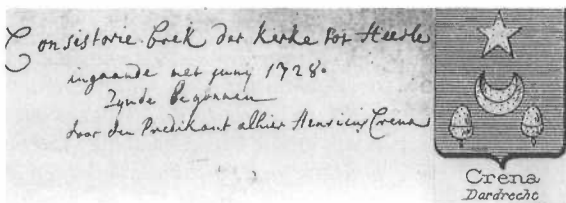 Consistorie boek der Kerke tot Heerle
ingaande met juny 1728.
Zynde Begonnen
door den Predikant alhier Henricus Crena
Crena
Dordrecht